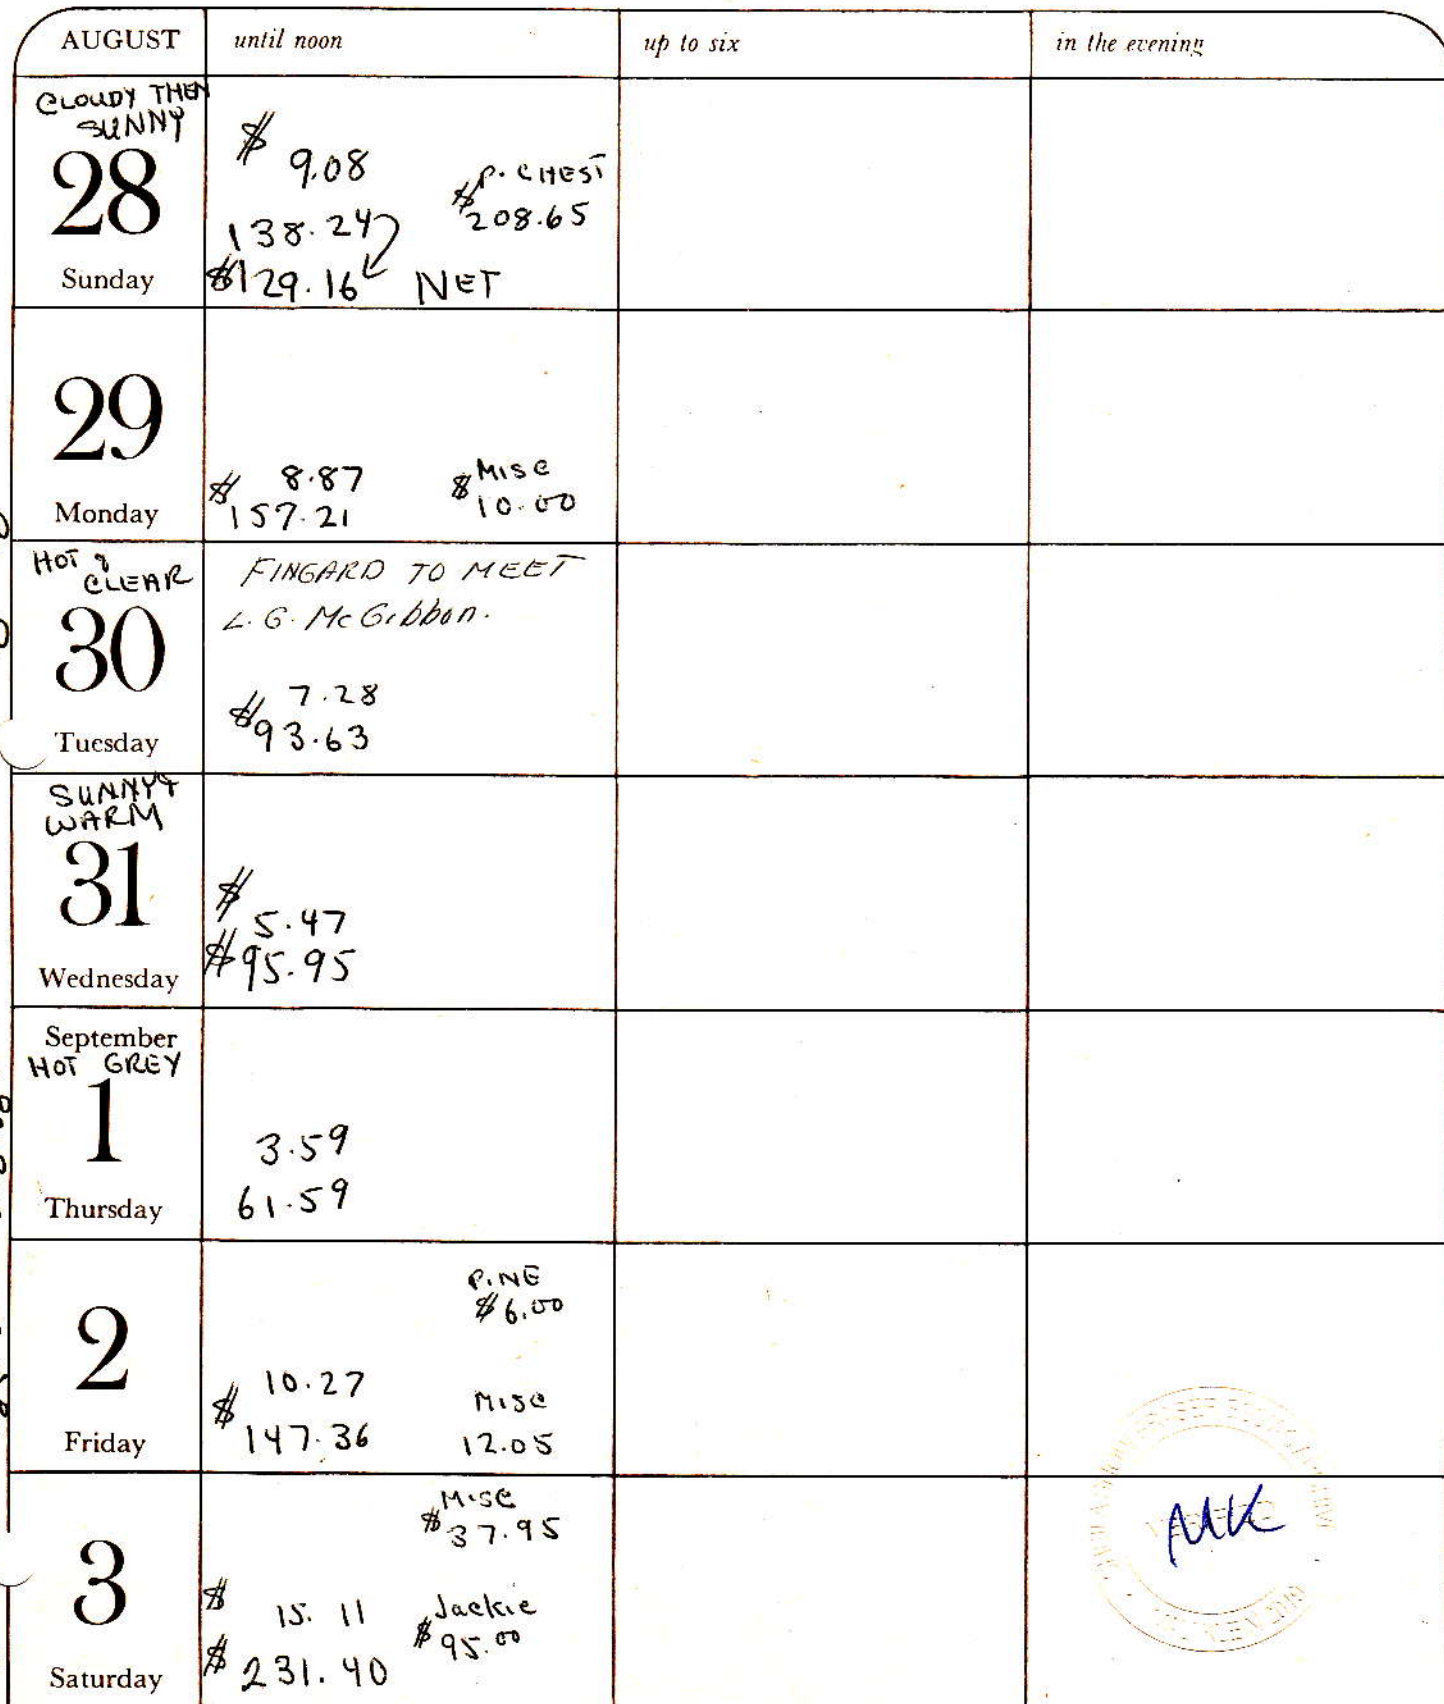 AUGUST until noon up to six in the evening
CLOUDY THEN
SUNNY
28
Sunday
$
9.08
138.24
$129.16 NET
P. CHEST
$208.65
29
Monday
$ 8.87
157.21
Misc
$10.00
HOT &
CLEAR
30
Tuesday
FINGARD TO MEET
L. G. McGibbon.
7.28
$93.63
SUNNY &
WARM
31
Wednesday
$
5.47
$95.95
September
HOT GREY
1
Thursday
3.59
61.59
2
Friday
PINE
$6.00
10.27
$147.36
Misc
12.05
3
Saturday
Misc
$37.95
$ 15.11
$231.40
Jackie
$95.00
MK